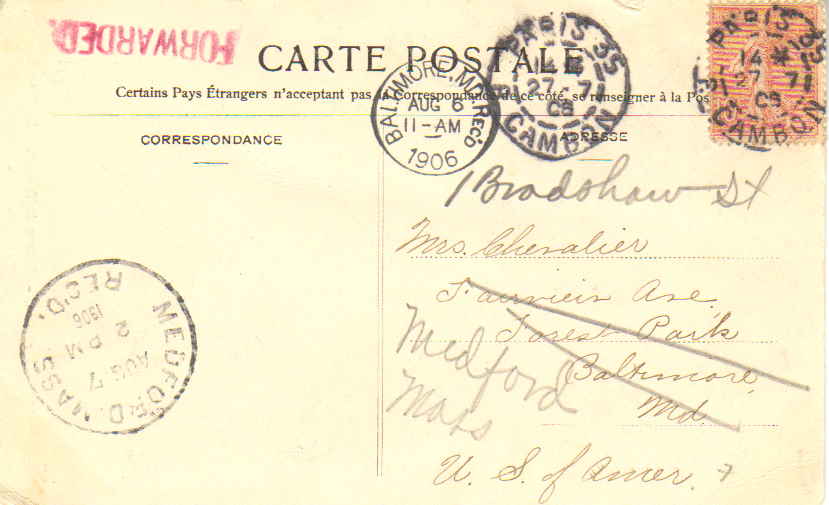 FORWARDED.
CARTE POSTALE
Certains Pays Étrangers n'acceptant pas la correspondance de ce côté, se renseigner à la Pos
CORRESPONDANCE
ADRESSE
BALTIMORE, MD. REC'D
AUG 6
11-AM
1906
PARIS 35
14
27 7
CAMBON
PARIS 35
14 *
27 7
CAMBON
1 Bradshaw St
Mrs. Chevalier
Fairview Ave.
Forest Park
Baltimore
Md.
Medford
Mass
U. S. of Amer.
MEDFORD, MASS.
AUG 7
2 PM
1906
REC'D.